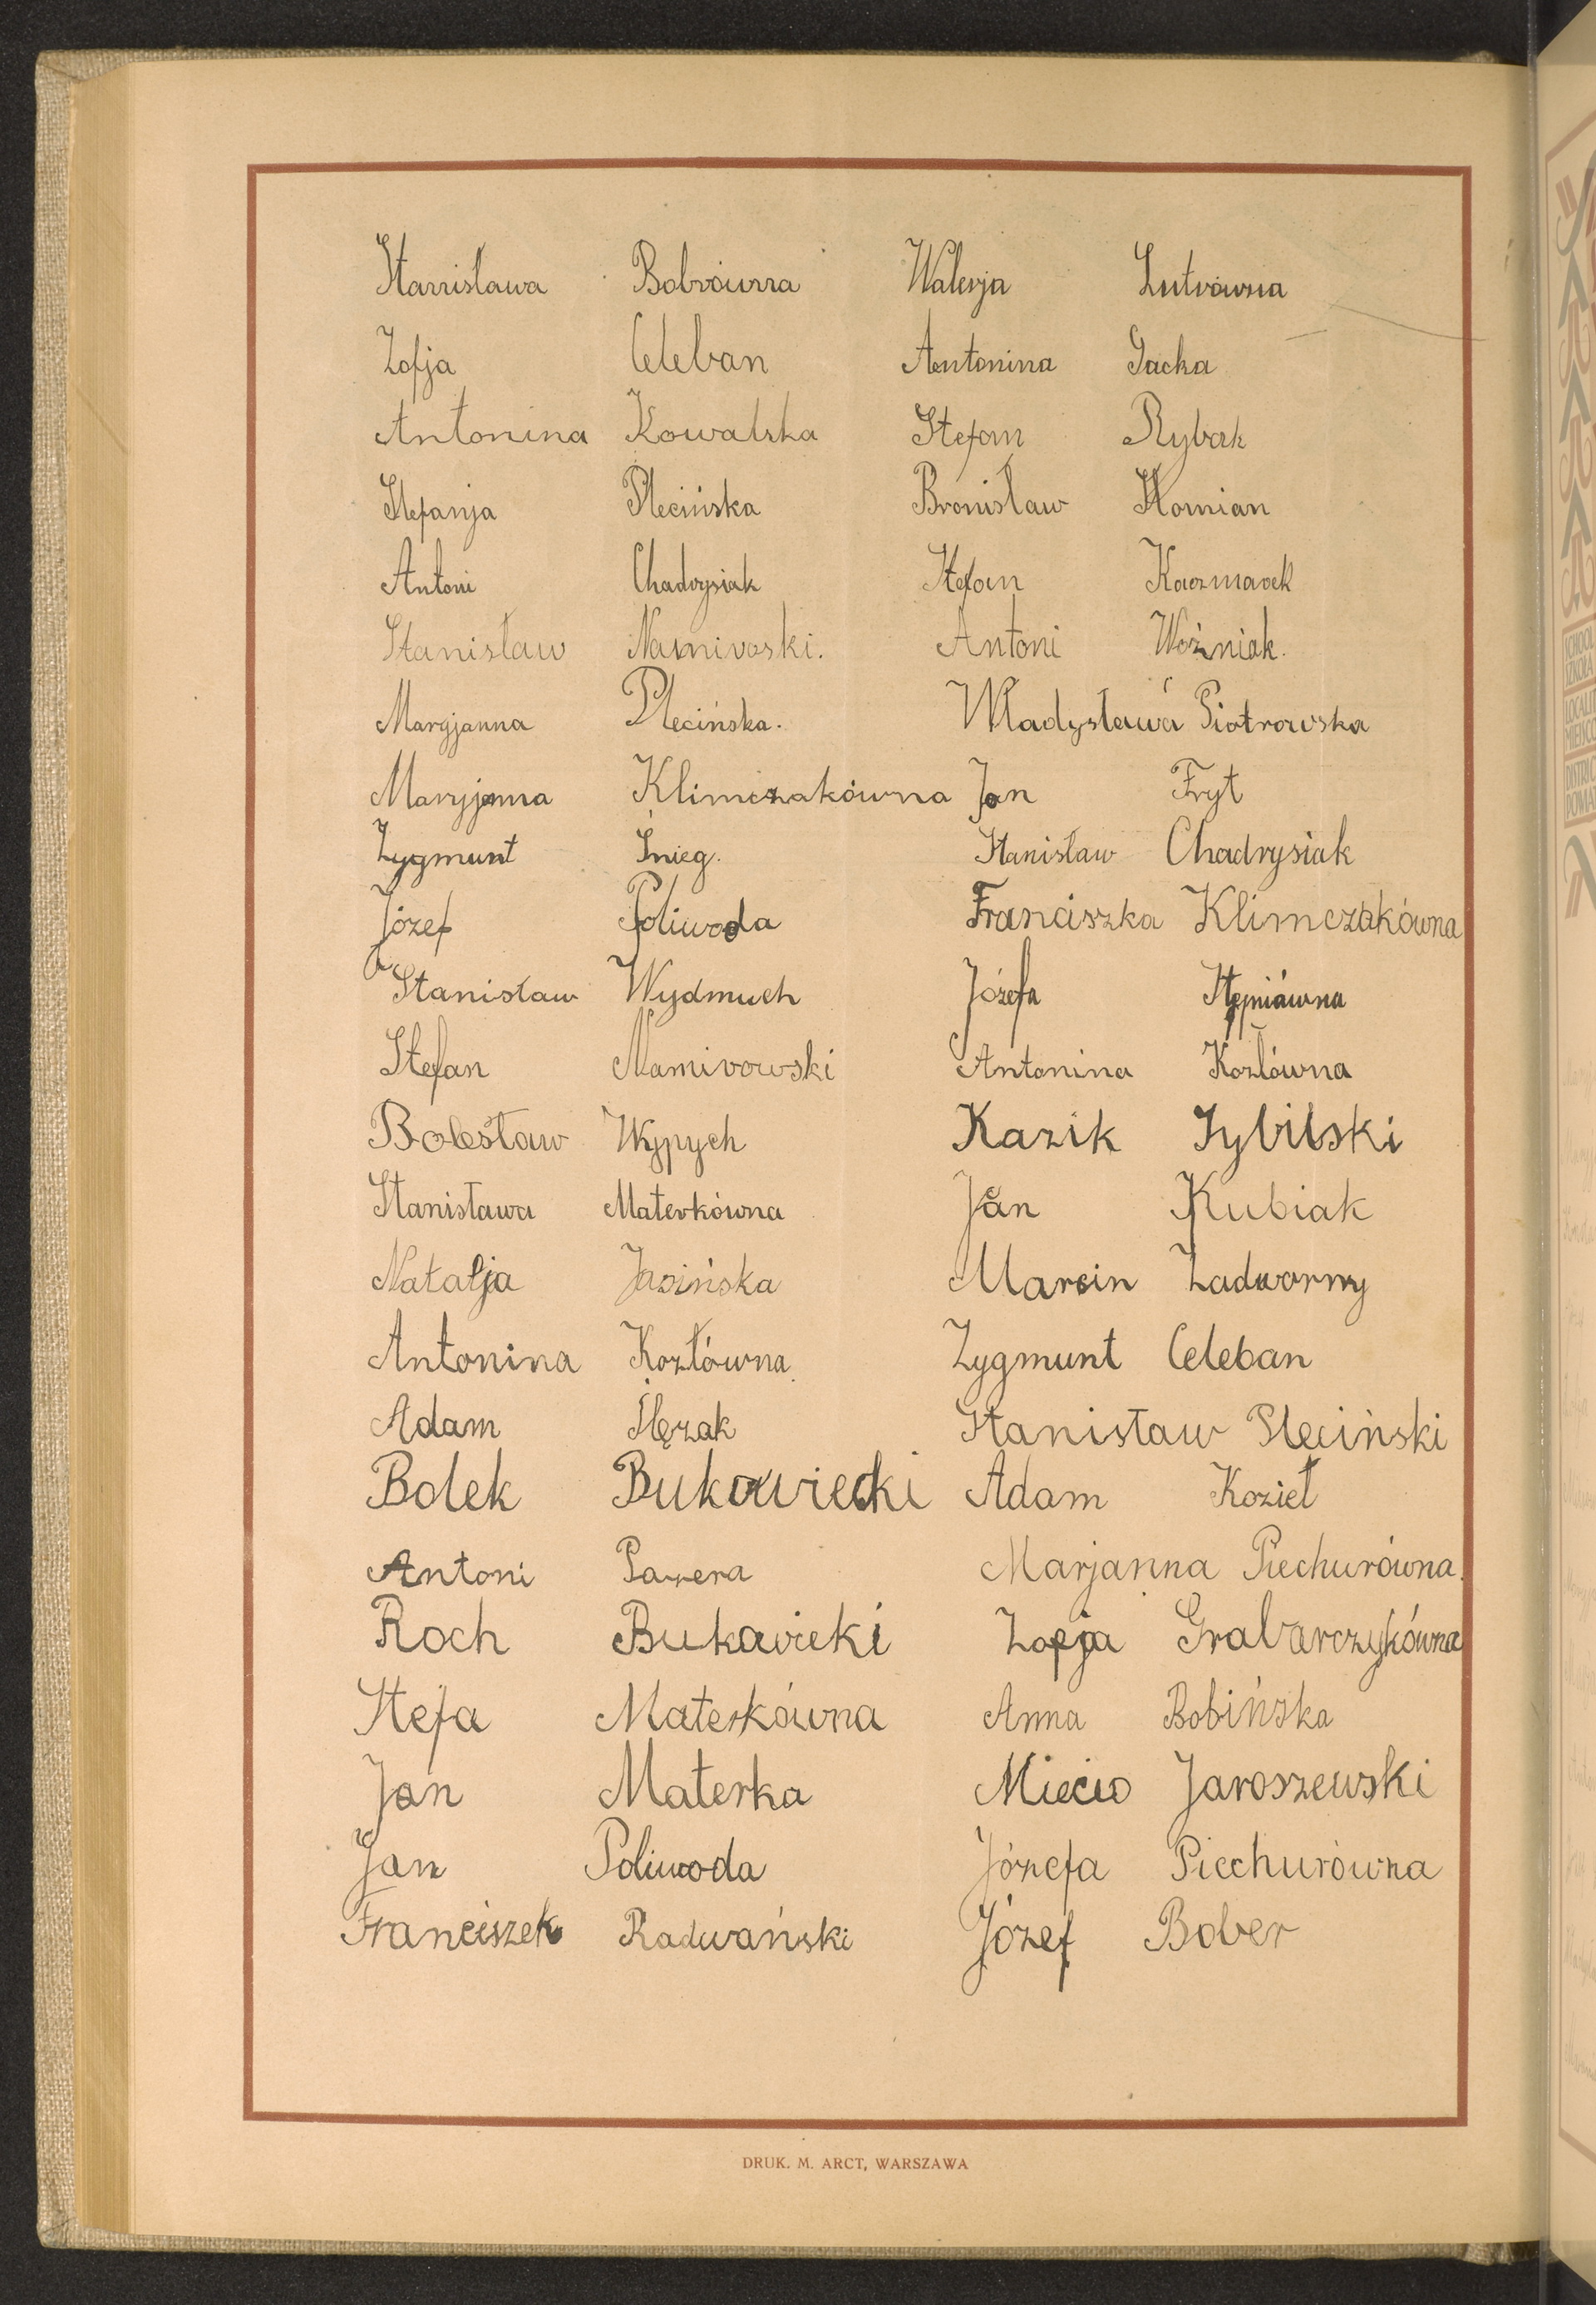 Stanisława Bobrówna Walerja Lutrówna
Zofja Celeban Antonina Gacka
Antonina Kowalska Stefan Rybak
Stefanja Plecińska Bronisław Słomian
Antoni Chadrysiak Stefan Kaczmarek
Stanisław Namirowski. Antoni Woźniak.
Maryjanna Plecińska. Władysława Piotrowska
Maryjanna Klimczakówna Jan Fryt
Zygmunt Śnieg. Stanisław Chadrysiak
Józef Poliwoda Franciszka Klimczakówna
Stanisław Wydmuch Józefa Stępniówna
Stefan Namirowski Antonina Kozłówna
Bolesław Wypych Kazik Sybilski
Stanisława Materkówna Jan Kubiak
Natalja Jasińska Marcin Zadworny
Antonina Kozłówna. Zygmunt Celeban
Adam Ślęzak Stanisław Pleciński
Bolek Bukowiecki Adam Kozieł
Antoni Pazera Marjanna Piechurówna.
Roch Bukawieki Zofja Grabarczykówna
Stefa Materkówna Anna Bobińska
Jan Materka Miecio Jaroszewski
Jan Poliwoda Józefa Piechurówna
Franciszek Radwański Józef Bober
DRUK. M. ARCT, WARSZAWA